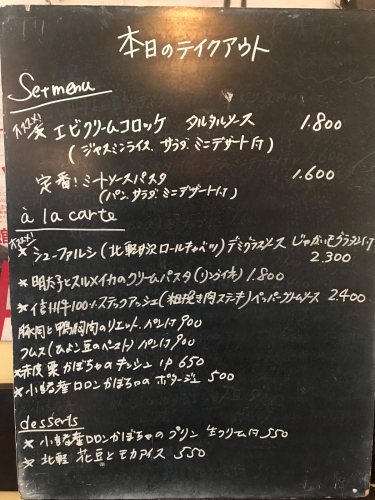 本日のテイクアウト
Set menu
オススメ!
★ エビクリームコロッケ タルタルソース 1.800
(ジャスミンライス、サラダ、ミニデザート付)
定番!ミートソースパスタ 1.600
(パン、サラダ、ミニデザート付)
à la carte
オススメ!
★ シューファルシ(北軽井沢ロールキャベツ)デミグラスソース じゃがいもグラタン付
2.300
★ 明太子とスルメイカのクリームパスタ(リングイネ) 1.800
★ 信州牛100%ステックアッシェ(粗挽き肉ステーキ)ペッパークリームソース 2.400
豚肉と鴨胸肉のリエット パン付 900
フムス(ひよこ豆のペースト)パン付 900
★ 赤皮栗かぼちゃのキッシュ 1P 650
★ 小諸産ロロンかぼちゃのポタージュ 500
desserts
★ 小諸産ロロンかぼちゃのプリン 生クリーム付 550
★ 北軽 花豆とモカアイス 550